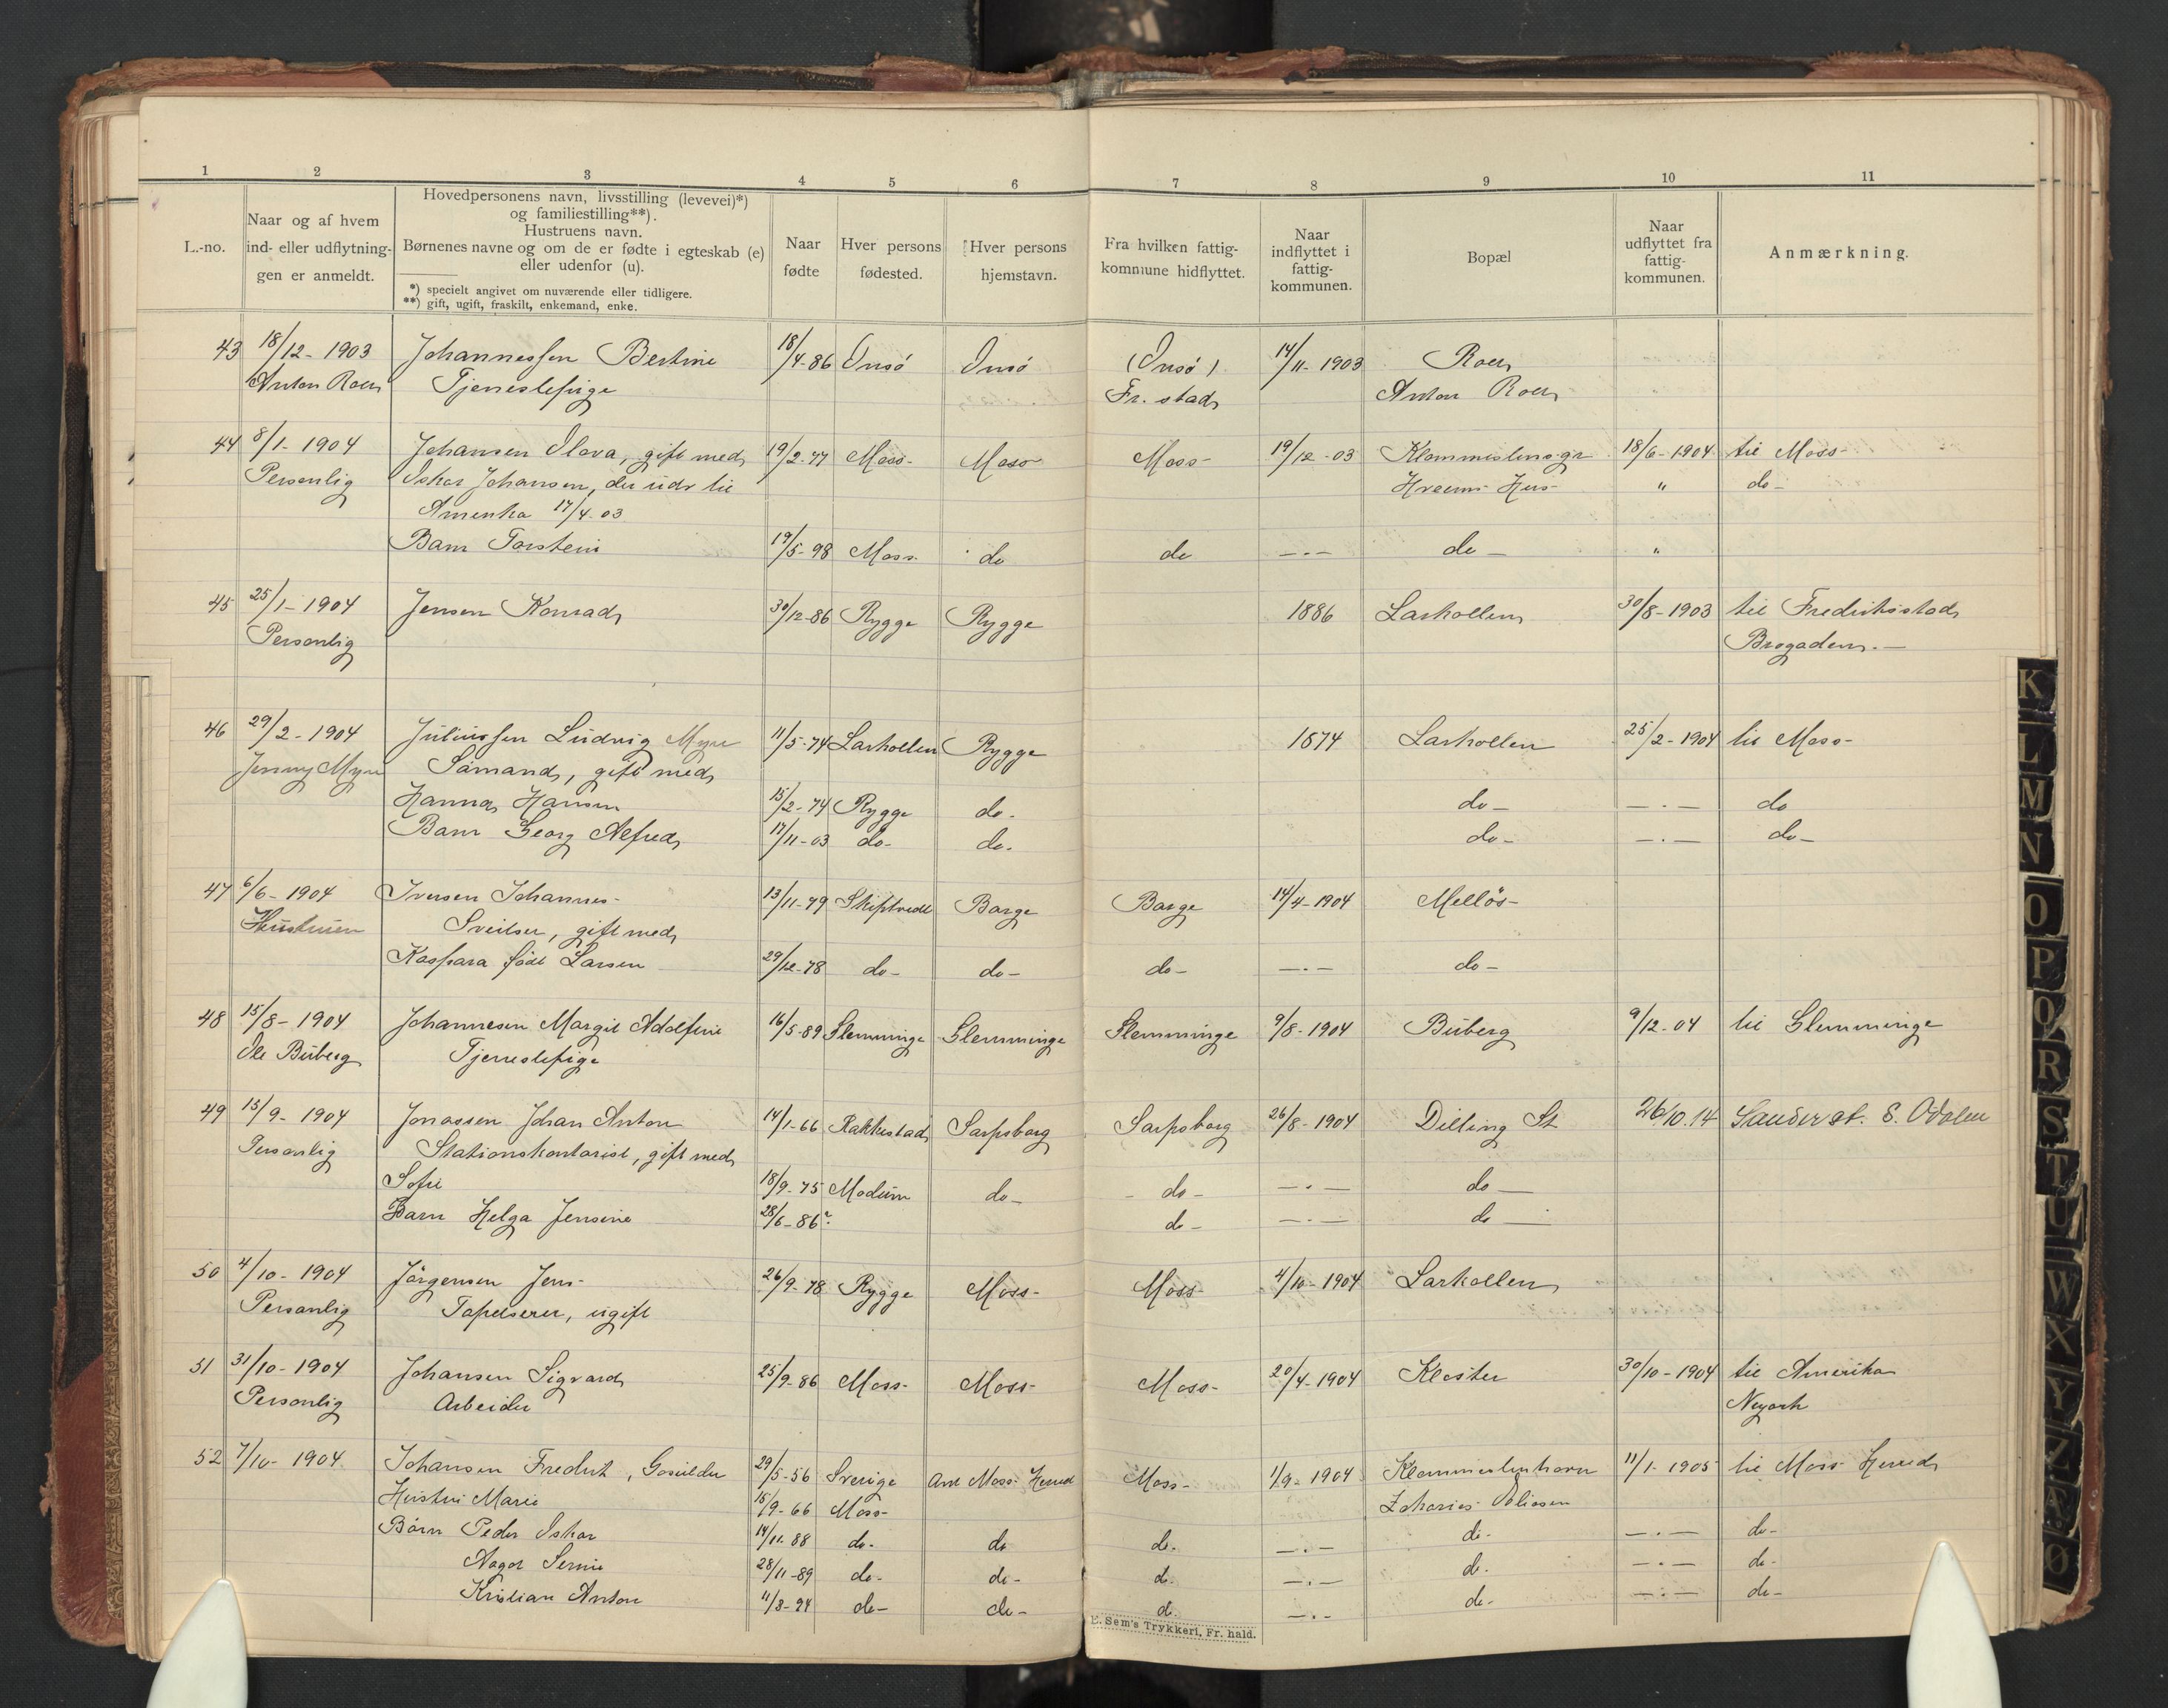 1 2 3 4 5 6 7 8 9 10 11
L.-no.
Naar og af hvem
ind- eller udflytnin-
gen er anmeldt.
Hovedpersonens navn, livsstilling (levevei)*)
og familiestilling**).
Hustruens navn.
Børnenes navne og om de er fødte i egteskab (e)
eller udenfor (u).
*) specielt angivet om nuværende eller tidligere.
**) gift, ugift, fraskilt, enkemand, enke.
Naar
fødte
Hver persons
fødested.
Hver persons
hjemstavn.
Fra hvilken fattig-
kommune hidflyttet.
Naar
indflyttet i
fattig-
kommunen.
Bopæl
Naar
udflyttet fra
fattig-
kommunen.
Anmærkning.
43 18/12- 1903 Johannessen Bertine 18/4-86 Onsö Onsö (Onsö) 14/11-1903 Roer
Anton Roer Tjenestepige Fr. stad Anton Roer
44 8/1- 1904 Johansen Olava, gift med 19/2-77 Moss- Moss Moss- 19/12-03 18/6-1904 til Moss-
Personlig Oskar Johansen, der udr til Hus- " do-
Amerika 17/4.03
Barn Torstein 19/5-98 Moss. do do —.— do — "
45 25/1- 1904 Jensen Konrad 30/12-86 Rygge Rygge 1886 Larkollen 30/8-1903 til Fredrikstad
Personlig Brogaden.—
46 29/2- 1904 Juliussen Ludvig Myre 11/5-74 Larkollen Rygge 1874 Larkollen 25/2-1904 til Moss-
Jenny Myre Sömand, gift med
Hanna Hansen 15/2-74 Rygge do. do — —.— do
Barn Georg Alfred 17/11-03 do- do. do — —.— do —
47 6/6- 1904 Iversen Johannes- 13/11-79 Skiptvedt Barge Barge 14/4-1904 Mellös-
Hustruen Sveitser, gift med
Kaspara född Larsen 29/12-78 do- do- do- —.— do —
48 15/8- 1904 Johannesen Margit Adolfine 16/5-89 Glemminge Glemminge Glemminge 9/8-1904 Büberg 9/12-04 til Glemminge
Ole Büberg Tjenestepige
49 15/9- 1904 Jonassen Johan Anton 14/1-66 Rakkestad Sarpsborg Sarpsborg 26/8-1904 Dilling St 26/10.14 Sander st. S. Odalen
Personlig Stationskontorist, gift med
Sofie 18/9-75 Modum do- - do- —.— do —
Barn Helga Jensine 28/6-86? do- —.— do —
50 4/10- 1904 Jörgensen Jens- 26/9-78 Rygge Moss- Moss- 4/10-1904 Larkollen
Personlig Tapetserer, ugift
51 31/10- 1904 Johansen Sigvard 25/9-86 Moss- Moss- Moss- 20/4-1904 Kloster 30/10-1904 til Amerika
Personlig Arbeider Nyork
52 7/10- 1904 Johansen Fredrik, 29/5-56 Sverige Moss Herred Moss- 1/9-1904 11/1-1905 til Moss Herred
Hustru Marie 15/9-66 Moss- Zakarias
Börn Peder Oskar 14/11-88 do- do do- —.— do- —.— do-
Aagot 28/11-89 do- do- do- —.— do- —.— do-
Kristian Anton 11/3-94 do- do- do. —.— do- —.— do-
E. Sem's Trykkeri, Fr. hald.
K
L
M
N
O
P
Q
R
S
T
U
W
X
Y
Z
Ø